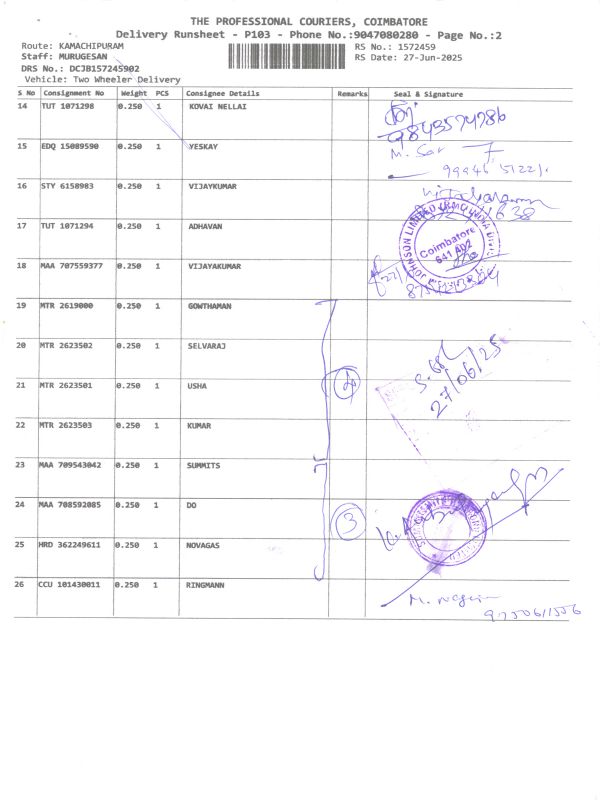 THE PROFESSIONAL COURIERS, COIMBATORE
Delivery Runsheet - P103 - Phone No.:9047080280 - Page No.:2
Route: KAMACHIPURAM RS No.: 1572459
Staff: MURUGESAN RS Date: 27-Jun-2025
DRS No.: DCJB157245902
Vehicle: Two Wheeler Delivery
S No Consignment No Weight PCS Consignee Details Remarks Seal & Signature
14 TUT 1071298 0.250 1 KOVAI NELLAI
9843574786
15 EDQ 15089590 0.250 1 YESKAY
M. Sar
16 STY 6158983 0.250 1 VIJAYKUMAR
17 TUT 1071294 0.250 1 ADHAVAN
JOHNSON LIMITED
Coimbatore
641 402
18 MAA 707559377 0.250 1 VIJAYAKUMAR
19 MTR 2619000 0.250 1 GOWTHAMAN
20 MTR 2623502 0.250 1 SELVARAJ
27/06/25
21 MTR 2623501 0.250 1 USHA
4
22 MTR 2623503 0.250 1 KUMAR
23 MAA 709543042 0.250 1 SUMMITS
24 MAA 708592085 0.250 1 DO
3
25 HRD 362249611 0.250 1 NOVAGAS
26 CCU 101430011 0.250 1 RINGMANN